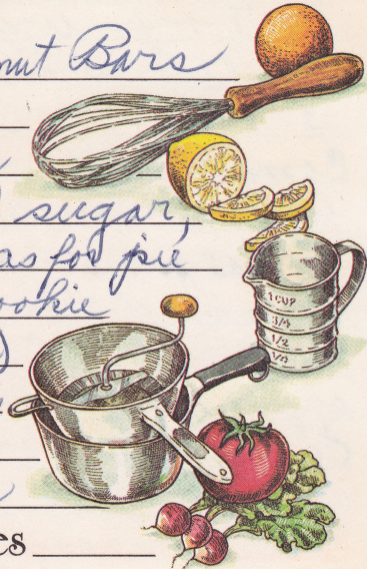 nut Bars
sugar,
as for pie
ookie
1 CUP
3/4
1/2
1/4
es